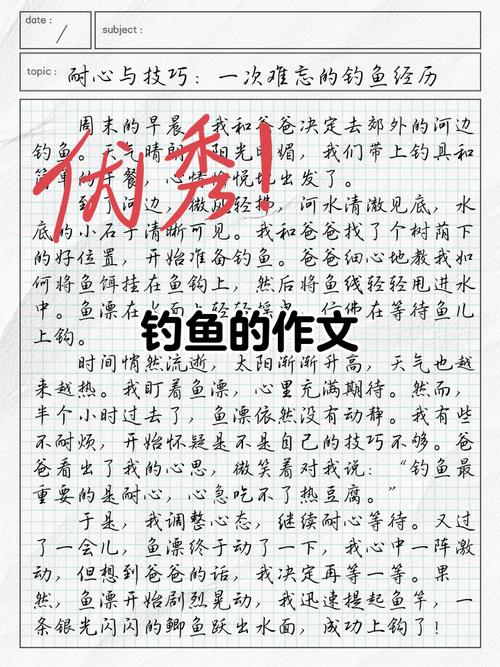 date:
subject:
topic: 耐心与技巧：一次难忘的钓鱼经历
周末的早晨，我和爸爸决定去郊外的河边
钓鱼。天气晴朗，阳光明媚，我们带上钓具和
简单的午餐，心情愉悦地出发了。
优秀！
到了河边，微风轻拂，河水清澈见底，水
底的小石子清晰可见。我和爸爸找了个树荫下
的好位置，开始准备钓鱼。爸爸细心地教我如
何将鱼饵挂在鱼钩上，然后将鱼线轻轻甩进水
中。鱼漂在水面上轻轻摇晃，仿佛在等待鱼儿
钓鱼的作文
上钩。
时间悄然流逝，太阳渐渐升高，天气也越
来越热。我盯着鱼漂，心里充满期待。然而，
半个小时过去了，鱼漂依然没有动静。我有些
不耐烦，开始怀疑是不是自己的技巧不够。爸
爸看出了我的心思，微笑着对我说：“钓鱼最
重要的是耐心，心急吃不了热豆腐。”
于是，我调整心态，继续耐心等待。又过
了一会儿，鱼漂终于动了一下，我心中一阵激
动，但想到爸爸的话，我决定再等一等。果
然，鱼漂开始剧烈晃动，我迅速提起鱼竿，一
条银光闪闪的鲫鱼跃出水面，成功上钩了！